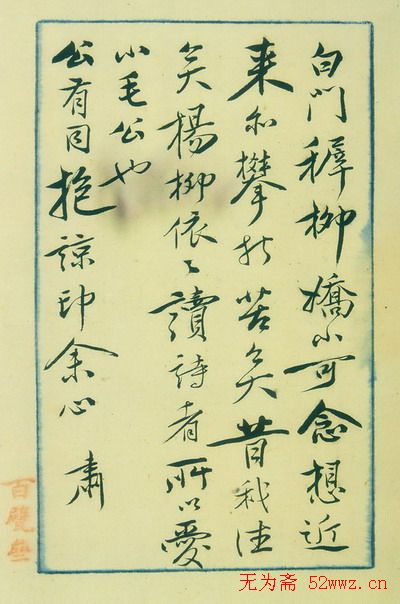 白門稺柳嬌小可念想近
來亦攀折苦矣昔我往
矣楊柳依〻讀詩者所以愛
小毛公也
公有同抱諒印余心 肅
百甓
无为斋 52wwz.cn